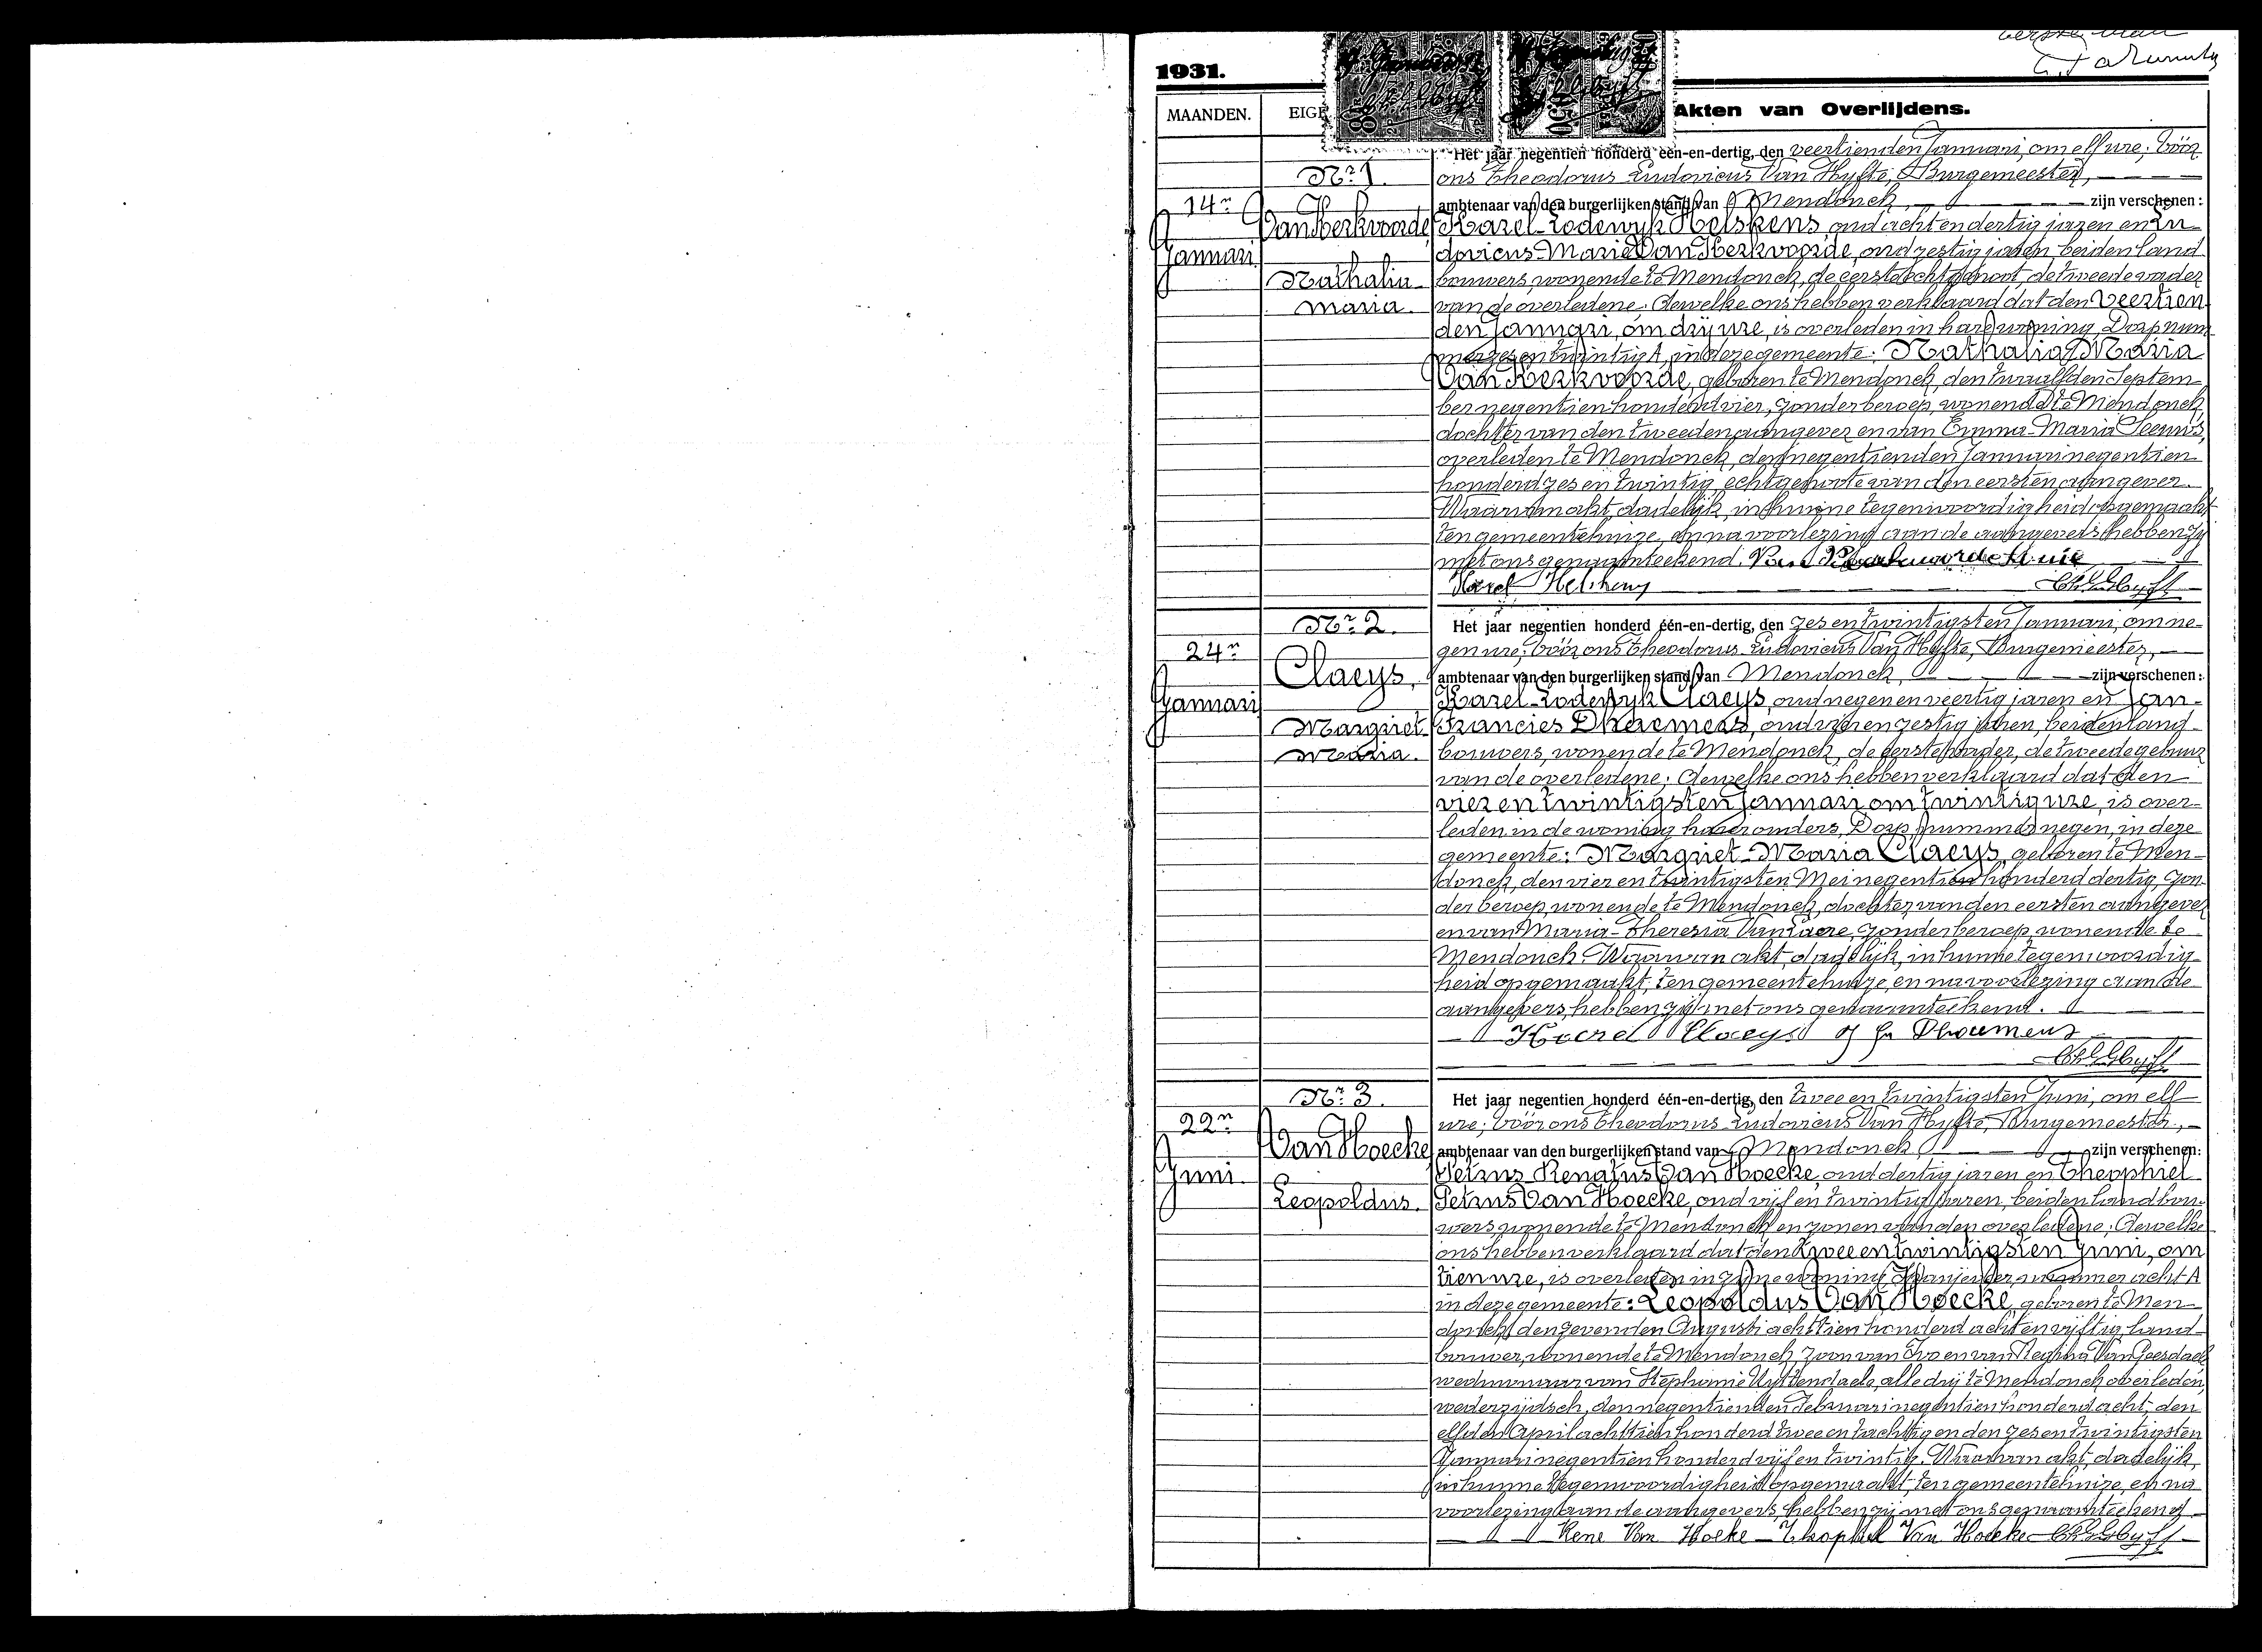 1931.
MAANDEN.
Akten van Overlijdens.
Nr. 1.
14n
Januari
Van Kerkvoorde
Nathalia
Maria.
Het jaar negentien honderd één-en-dertig, den veertienden Januari, om elf ure; vóór
ons Theodorus Ludovicus Van Hyfte, Burgemeester,
ambtenaar van den burgerlijken stand van Mendonck, zijn verschenen:
Karel-Lodewyk Helskens, oud acht en dertig jaren en Lu-
dovicus-Marie Van Kerkvoorde, oud zestig jaren, beiden land-
bouwers, wonende te Mendonck, de eerste echtgenoot, de tweede vader
van de overledene; dewelke ons hebben verklaard dat den veertien-
den Januari, om drij ure, is overleden in hare woning, Dorp num-
mer zes en twintig A, in deze gemeente: Nathalia Maria
Van Kerkvoorde, geboren te Mendonck, den twaalfden Septem-
ber negentien honderd vier, zonder beroep, wonende te Mendonck,
dochter van den tweeden aangever en van Emma-Maria
overleden te Mendonck, den negentienden Januari negentien
honderd zes en twintig, echtgenoote van den eersten aangever.
Waarvan akt, dadelijk, in hunne tegenwoordigheid opgemaakt
ten gemeentehuize, en na voorlezing aan de aangevers hebben zij
met ons genaamteekend.
Karel Helskens
Nr. 2.
24n
Januari
Claeys,
Margriet-
Maria.
Het jaar negentien honderd één-en-dertig, den zes en twintigsten Januari, om ne-
gen ure; vóór ons Theodorus Ludovicus Van Hyfte, Burgemeester,
ambtenaar van den burgerlijken stand van Mendonck, zijn verschenen:
Karel-Lodewyk Claeys, oud negen en veertig jaren en Jan-
Francies Dhaemers, oud zestig jaren, beiden land-
bouwers, wonende te Mendonck, de eerste vader, de tweede gebuur
van de overledene; dewelke ons hebben verklaard dat den
vier en twintigsten Januari om twintig ure, is over-
leden in de woning harer ouders, Dorp, nummer negen, in deze
gemeente: Margriet-Maria Claeys, geboren te Men-
donck, den vier en twintigsten Mei negentien honderd dertig, zon-
der beroep, wonende te Mendonck, dochter van den eersten aangever
en van Maria-Theresia Van Laere, zonder beroep, wonende te
Mendonck. Waarvan akt, dadelijk, in hunne tegenwoordig-
heid opgemaakt, ten gemeentehuize, en na voorlezing aan de
aangevers, hebben zij met ons genaamteekend.
Karel Claeys J Fr Dhaemers
Nr. 3.
22n
Juni
Van Hoecke
Leopoldus.
Het jaar negentien honderd één-en-dertig, den twee en twintigsten Juni, om elf
ure; vóór ons Theodorus Ludovicus Van Hyfte, Burgemeester,
ambtenaar van den burgerlijken stand van Mendonck, zijn verschenen:
Petrus-Renatus Van Hoecke, oud dertig jaren en Theophiel
Petrus Van Hoecke, oud vijf en twintig jaren, beiden landbou-
wers, wonende te Mendonck en zonen van den overledene; dewelke
ons hebben verklaard dat den twee en twintigsten Juni, om
tien ure, is overleden in zijne woning, Spanjeveer, nummer acht A
in deze gemeente: Leopoldus Van Hoecke, geboren te Men-
donck, den zevenden Augusti achttien honderd acht en vijftig, land-
bouwer, wonende te Mendonck, zoon van Ivo en van Regina Van
weduwnaar van Stephanie Uyttendaele, alle drij te Mendonck overleden,
wederzijdsch, den negentienden Februari negentien honderd acht, den
elfden April achttien honderd twee en tachtig en den zes en twintigsten
Januari negentien honderd vijf en twintig. Waarvan akt, dadelijk,
in hunne tegenwoordigheid opgemaakt, ten gemeentehuize, en na
voorlezing aan de aangevers, hebben zij met ons genaamteekend
Rene Van Hoeke Theophiel Van Hoecke